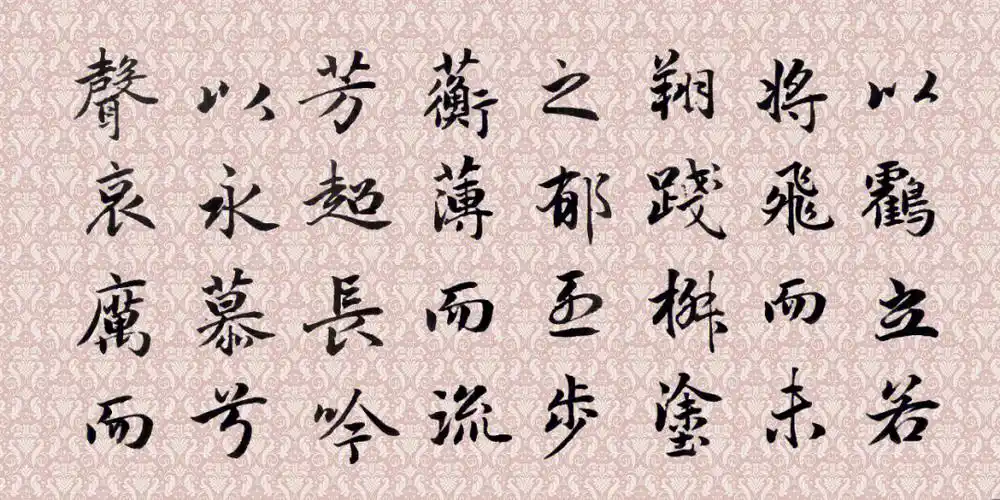 以鸖立若
将飛而未
翔踐椒塗
之郁烈步
蘅薄而流
芳超長吟
以永慕兮
聲哀厲而